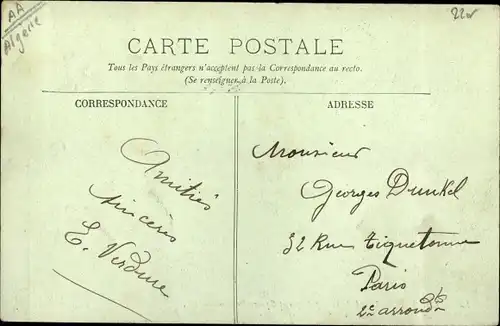 AA
Algerie
22
CARTE POSTALE
Tous les Pays étrangers n'acceptent pas la Correspondance au recto.
(Se renseigner à la Poste).
CORRESPONDANCE
ADRESSE
Amitiés
sincères
E. Verdure
Monsieur
Georges Dunkel
32 Rue Tiquetonne
Paris
2e arrond